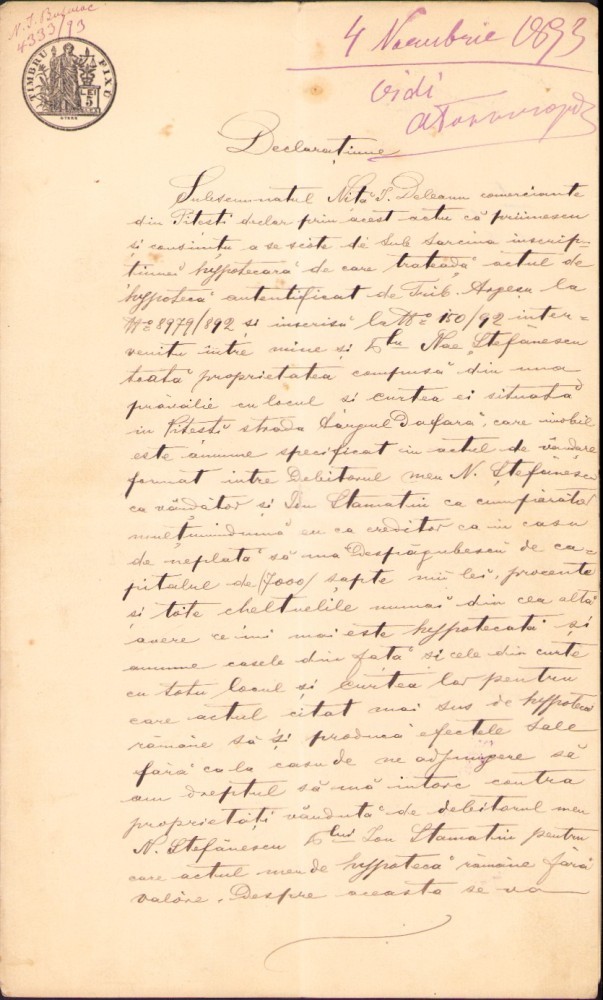 4333/93
4 Noembrie 1893
TIMBRU FIXU
LEI 5
vidi
Declarațiune
Subsemnatul Niță I. Deleanu comerciante
din Pitesti declar prin acest actu că priimescu
și consimțu a se scóte de sub sarcina inscrip-
țiunei hypotecară de care tratédă actul de
hypotecă autentificat de Trib. Argeșu la
No 8979/892 și inscrisă la No 150/92 inter=
venitu între mine și Dlu Nae Ștefănescu
toată proprietatea compusă din una
prăvălie cu locul și curtea ei situată
in Pitesti strada Târgul Dafară, care imobil
este anume specificat in actul de vândare
format intre Debitorul meu N. Ștefănescu
ca vândător și Ion Stamatin ca cumpărător
mulțumindumă eu ca creditor ca in casu
de neplată să mă Despăgubescu de ca=
pitalul de (7000) șapte mii lei, procente
și tóte cheltuelile numai din cea altă
avere ce imi mai este hypotecată și
anume casele din față și cele din curte
cu totu locul și curtea lor pentru
care actul citat mai sus de hypotecă
rămâne să 'și producă efectele sale
fără ca la casu de ne adjungere să
am dreptul să mă intorc contra
proprietăți vândută de debitorul meu
N. Ștefănescu Dlui Ion Stamatin pentru
care actul meu de hypotecă rămâne fără
valóre. Despre aceasta se va